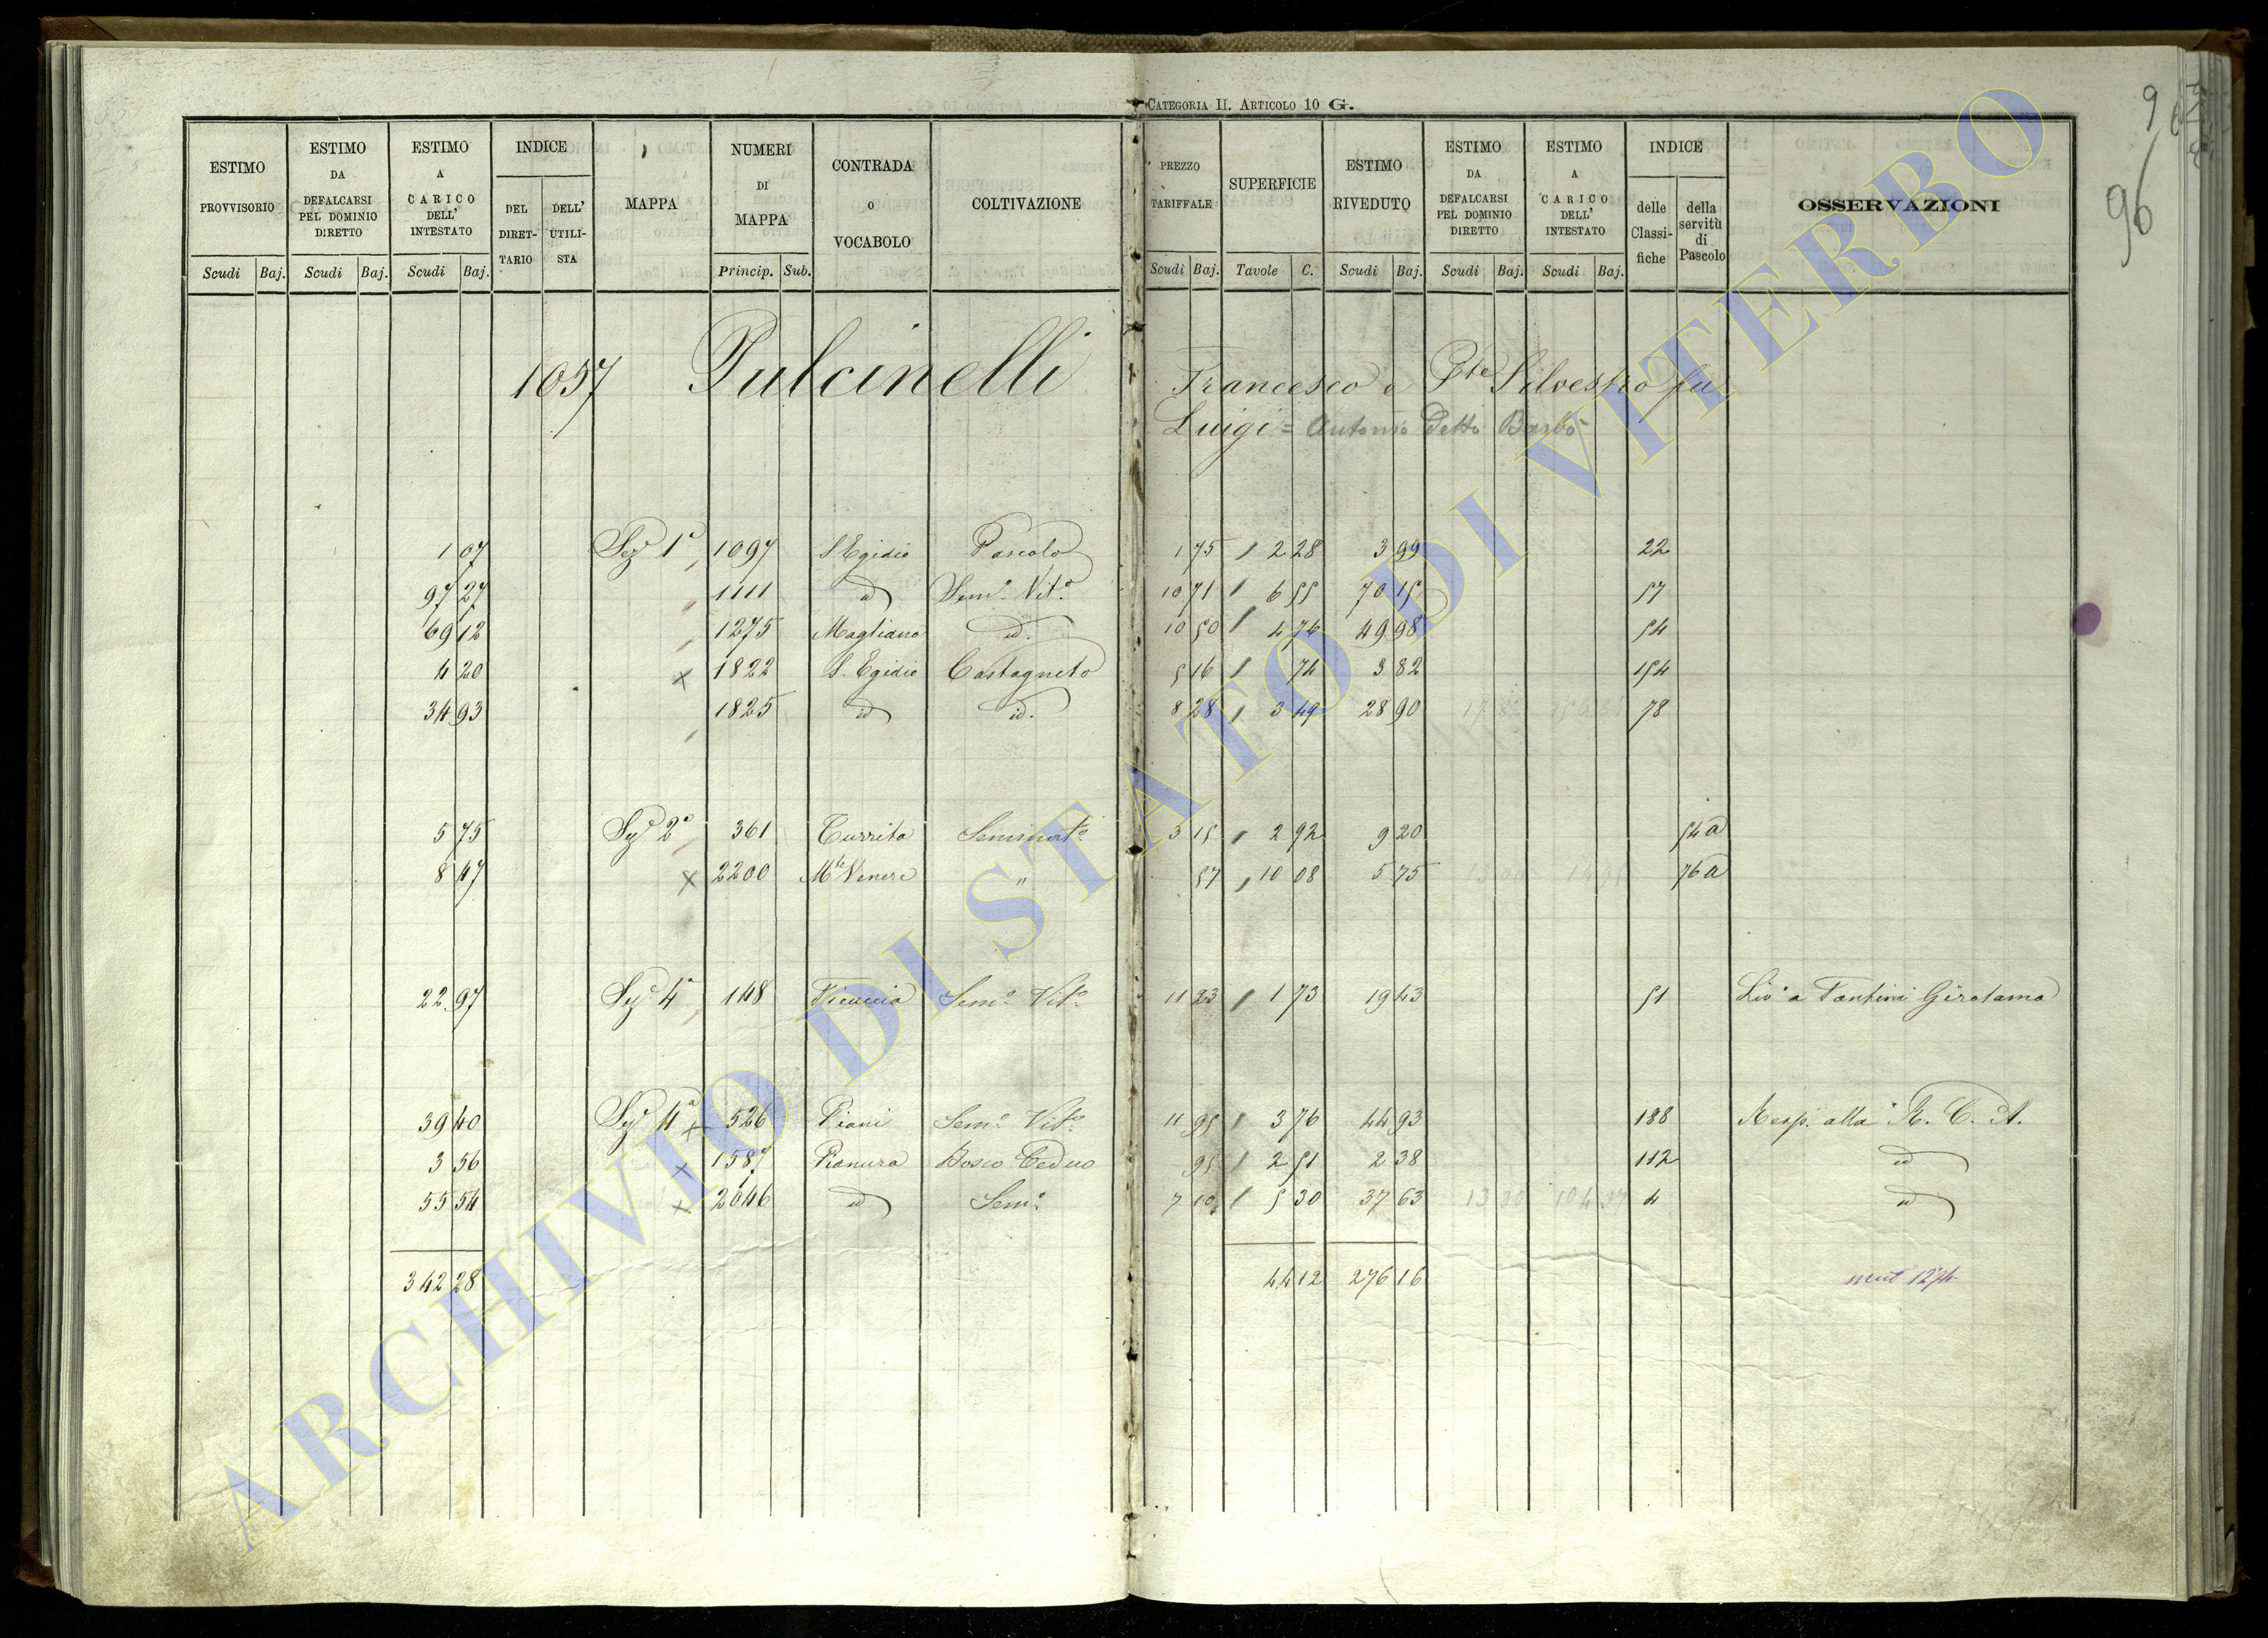 CATEGORIA II. ARTICOLO 10 G.
96
96
ESTIMO PROVVISORIO Scudi Baj. ESTIMO DA DEFALCARSI PEL DOMINIO DIRETTO Scudi Baj. ESTIMO A CARICO DELL' INTESTATO Scudi Baj. INDICE DEL DIRET-TARIO DELL' UTILI-STA MAPPA NUMERI DI MAPPA Princip. Sub. CONTRADA O VOCABOLO COLTIVAZIONE PREZZO TARIFFALE Scudi Baj. SUPERFICIE Tavole C. ESTIMO RIVEDUTO Scudi Baj. ESTIMO DA DEFALCARSI PEL DOMINIO DIRETTO Scudi Baj. ESTIMO A CARICO DELL' INTESTATO Scudi Baj. INDICE delle Classi-fiche della servitù di Pascolo OSSERVAZIONI
1057 Pulcinelli Francesco e Pte Silvestro fu
Luigi = Antonio Detto Barbo
1 07 Sez 1ª 1097 S Egidio Pascolo 1 75 2 28 3 99 22
97 27 1111 id Semo Vito 10 71 6 55 70 15 57
69 12 1275 Magliano id. 10 50 4 76 49 98 54
4 20 x 1822 S. Egidio Castagneto 5 16 74 3 82 154
34 93 1825 id id. 8 28 3 49 28 90 78
5 75 Sez 2ª 361 Currita Seminato 3 15 2 92 9 20 54a
8 47 x 2200 Mte Venere " 57 10 08 5 75 76a
22 97 Sez 4ª 148 Ficuccia Semo Vito 11 23 1 73 19 43 51 Livo a Fantini Girolama
39 40 Sez 4ª x 526 Piani Semo Vito 11 95 3 76 44 93 188 Resp. alla R. C. A.
3 56 x 1587 Pianura Bosco Ceduo 95 2 51 2 38 112 id
55 54 x 2046 id Semo 7 10 5 30 37 63 4 id
342 28 44 12 276 16 mut 1274
ARCHIVIO DI STATO DI VITERBO